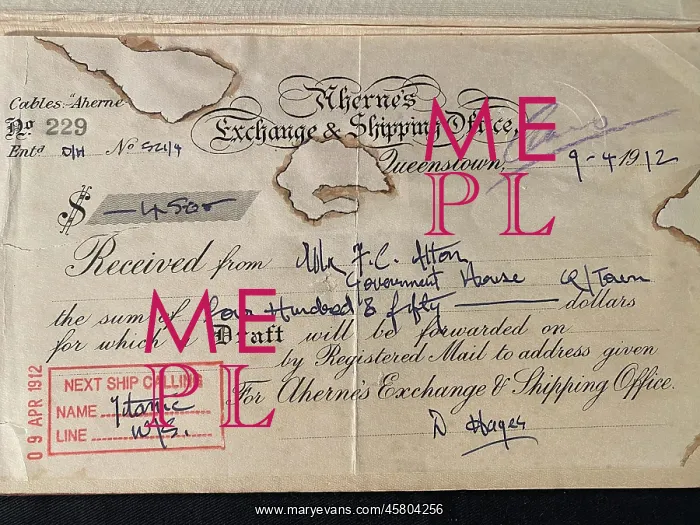 Cables:-"Aherne
Aherne's
No. 229
Exchange & Shipping Office,
Entd O/H No 5214
Queenstown, 9-4 1912
$ —450—
Received from Mr F.C. Alton
Government House Q/Town
the sum of Four Hundred & fifty ——— dollars
for which a Draft will be forwarded on
by Registered Mail to address given
For Aherne's Exchange & Shipping Office.
D Hayes
09 APR 1912
NEXT SHIP CALLING
NAME Titanic
LINE W/S.
ME
PL
ME
PL
www.maryevans.com/45804256